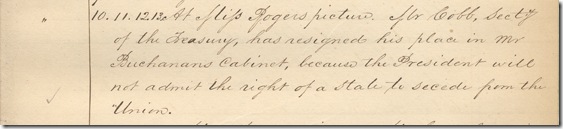 " 10. 11. 12. 13 At Miss Rogers picture. Mr Cobb, Secty
of the Treasury, has resigned his place in Mr
Buchanans Cabinet, because the President will
not admit the right of a State to secede from the
Union.